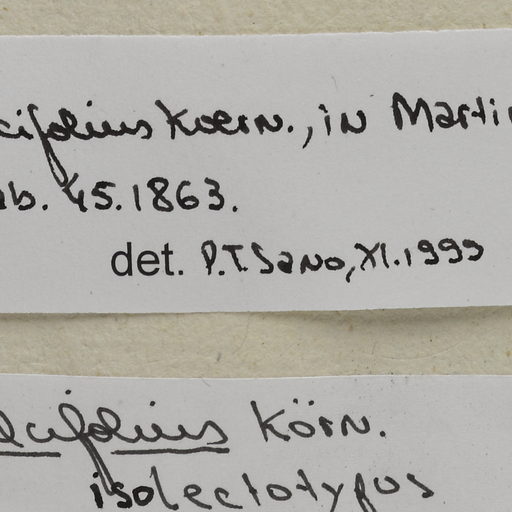 cifolius Koern., in Martin
ab. 45.1863.
det. P.T.Sano, XI.1999
lcifolius Körn.
isolectotypus